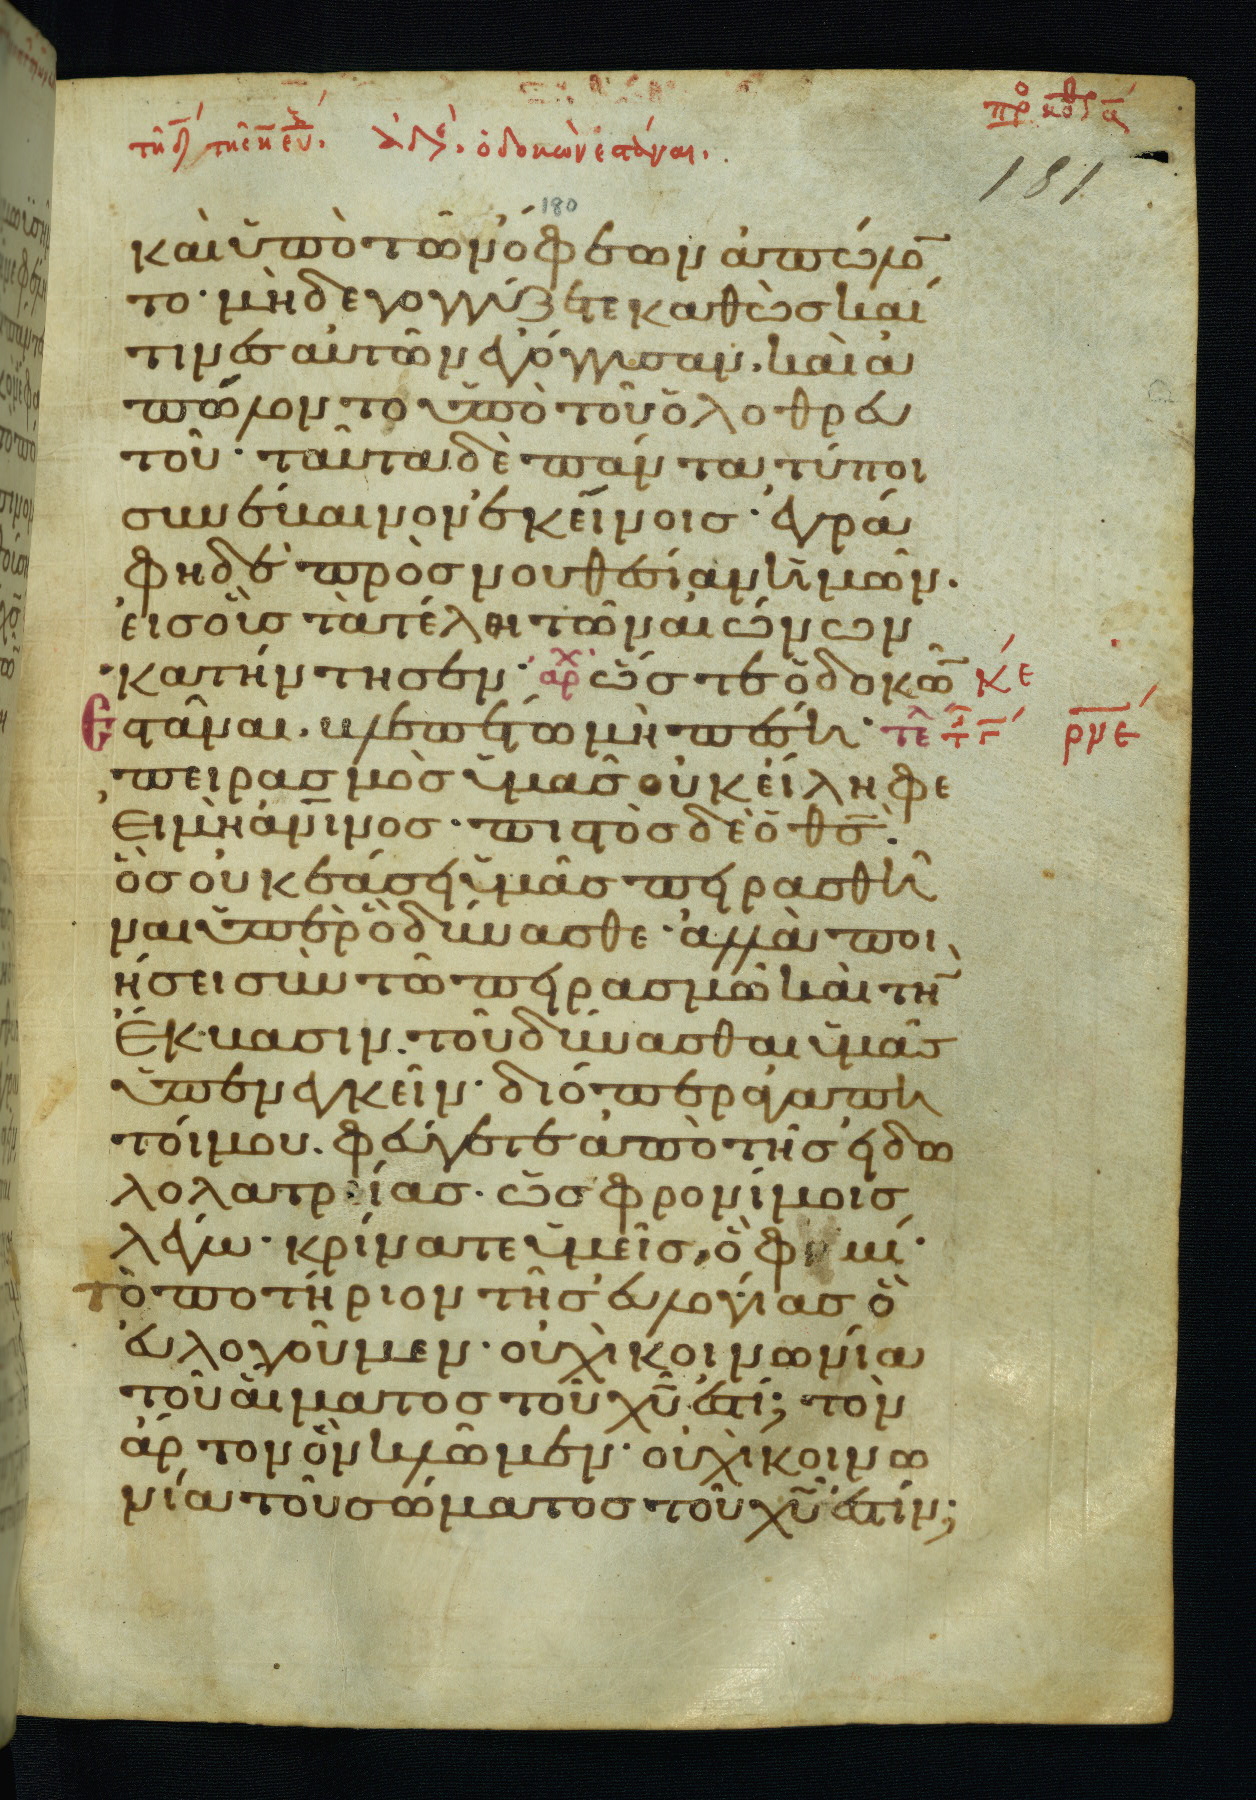 πρ κορ α
τῇ δ τῆς η εβ. ἀδε. ὁ δοκῶν ἑστάναι.
181
180
καὶ ὑπὸ τῶν ὄφεων ἀπώλο̅
το· μηδὲ γογγύζετε καθὼς καί
τινες αὐτῶν ἐγόγγυσαν. καὶ ἀ
πώλοντο ὑπὸ τοῦ ὀλοθρευ
τοῦ· ταῦτα δὲ πάντα τύποι
συνέβαινον ἐκείνοις· ἐγρά
φη δὲ πρὸς νουθεσίαν ἡμῶν.
εἰς οὓς τὰ τέλη τῶν αἰώνων
κατήντησεν· ἀρχ ὥστε ὁ δοκῶ̅ κε
ἑστάναι. βλεπέτω μὴ πέσῃ· τε ρνε
πειρασμὸς ὑμᾶς οὐκ εἴληφε
εἰ μὴ ἀν̅ινος· πιστὸς δὲ ὁ θς̅.
ὃς οὐκ ἐάσει ὑμᾶς πειρασθῆ
ναι ὑπὲρ ὃ δύνασθε· ἀλλὰ ποι
ήσει σὺν τῶ πειρασμῶ καὶ τὴ̅
ἔκβασιν. τοῦ δύνασθαι ὑμᾶς
ὑπενεγκεῖν· διόπερ ἀγαπη
τοί μου. φεύγετε ἀπὸ τῆς εἰδω
λολατρίας. ὡς φρονίμοις
λέγω· κρίνατε ὑμεῖς, ὅ φημί·
τὸ ποτήριον τῆς εὐλογίας ὃ
εὐλογοῦμεν· οὐχὶ κοινωνία
τοῦ αἵματος τοῦ χῦ̅ ἐστί; τὸν
ἄρτον ὃν κλῶμεν· οὐχὶ κοινω
νία τοῦ σώματος τοῦ χῦ̅ ἐστίν;